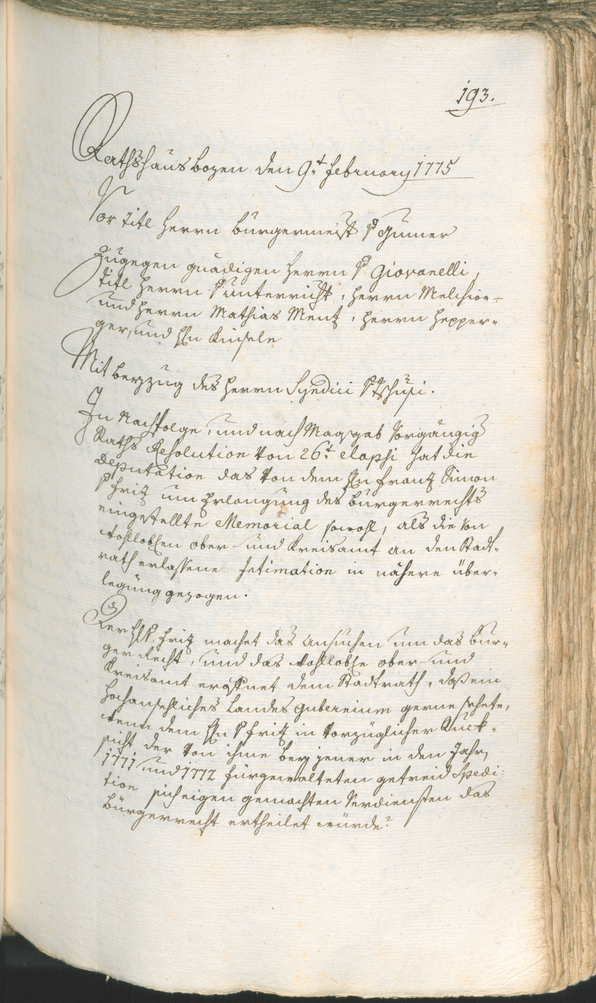 193.
Rathshaus bozen den 9.t february 1775
Vor Titl Herrn bürgermeist P Gumer
Zugegen gnädigen Herrn P Giovanelli,
Titl Herrn Punterricht, Herrn Melchior
und Herrn Mathias Mentz, Herrn Hepper-
ger, und Hn Kinsele
Mit beyzug des Herrn Syndici
In Nachfolge, und nach Maasgab vorgängig
Raths Resolution von 26.t elapsi hat die
Deputation das von dem Hn Frantz Simon
P Fritz um Erlangung des bürgerrechts
eingestellte Memorial sowohl, als die von
wohllobsen ober- und Kreisamt an den Stadt-
rath erlassene Intimation in nähere über-
legung gezogen.
Fritz machet das Ansuchen um das bür-
gerRecht, und das wohllobse ober- und
Kreisamt eröffnet dem Stadtrath, daß ein
Hochansehliches Landes gubernium gerne sehete,
wenn dem Hn P Fritz in vorzüglicher Rück-
sicht der von ihme bey jener in den Jahr,
1771 und 1772 fürgewalteten getreid Spedi-
tion sich eigen gemachten Verdiensten das
bürgerrecht ertheilet würde?